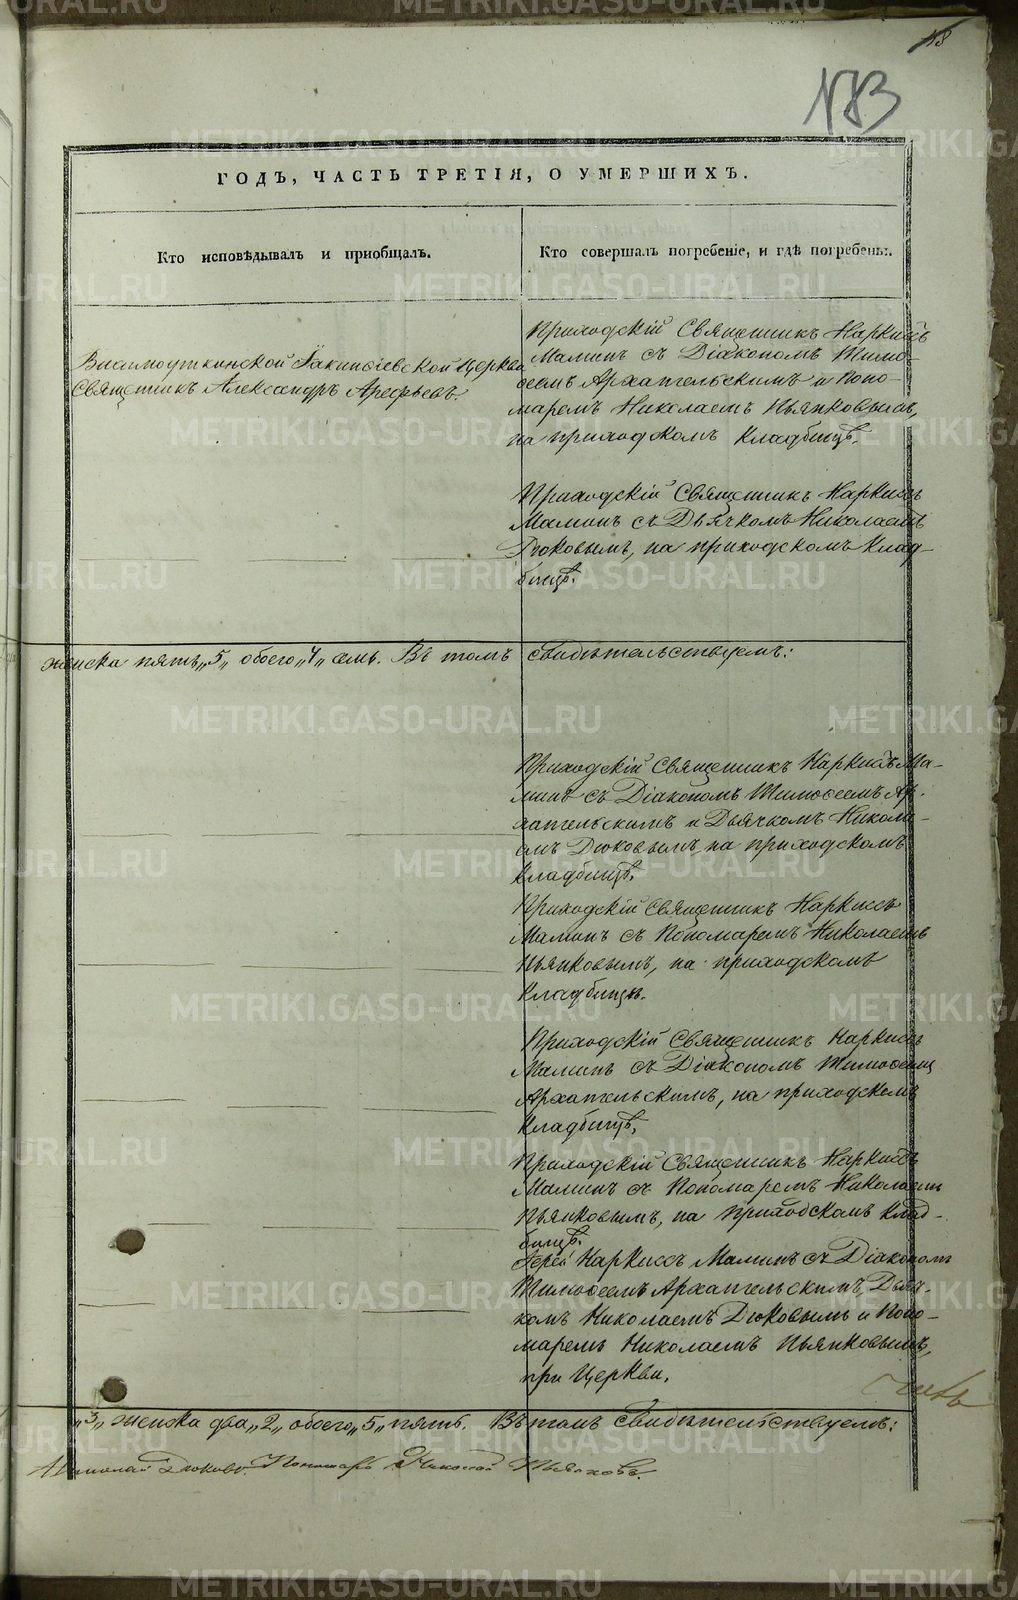 183
ГОДЪ, ЧАСТЬ ТРЕТІЯ, О УМЕРШИХЪ.
Кто исповѣдывалъ и пріобщалъ.
Кто совершалъ погребеніе, и гдѣ погребены.
Висимоуткинской Іакинѳіевской Церкви
Священникъ Александръ Арефьевъ.
Приходскій Священникъ Наркисъ
Маминъ съ Діакономъ Тимо-
ѳеемъ Архангельскимъ и Поно-
маремъ Николаемъ Пьянковымъ,
на приходскомъ кладбищѣ.
Приходскій Священникъ Наркисъ
Маминъ съ Дьячкомъ Николаемъ
Дюковымъ, на приходскомъ клад-
бищѣ.
женска пять „5„ обоего „7„ семь. Въ томъ свидѣтельствуемъ:
Приходскій Священникъ Наркисъ Ма-
минъ съ Діакономъ Тимоѳеемъ Ар-
хангельскимъ и Дьячкомъ Никола-
емъ Дюковымъ, на приходскомъ
кладбищѣ.
Приходскій Священникъ Наркиссъ
Маминъ съ Пономаремъ Николаемъ
Пьянковымъ, на приходскомъ
кладбищѣ.
Приходскій Священникъ Наркисъ
Маминъ съ Діакономъ Тимоѳеемъ
Архангельскимъ, на приходскомъ
кладбищѣ.
Приходскій Священникъ Наркисъ
Маминъ съ Пономаремъ Николаемъ
Пьянковымъ, на приходскомъ клад-
бищѣ.
Іерей Наркиссъ Маминъ съ Діакономъ
Тимоѳеемъ Архангельскимъ, Дьяч-
комъ Николаемъ Дюковымъ и Поно-
маремъ Николаемъ Пьянковымъ,
при Церкви.
„3„ женска два „2„ обоего „5„ пять. Въ томъ свидѣтельствуемъ:
Николай Дюковъ. Пономарь Николай Пьянковъ.
METRIKI.GASO-URAL.RU